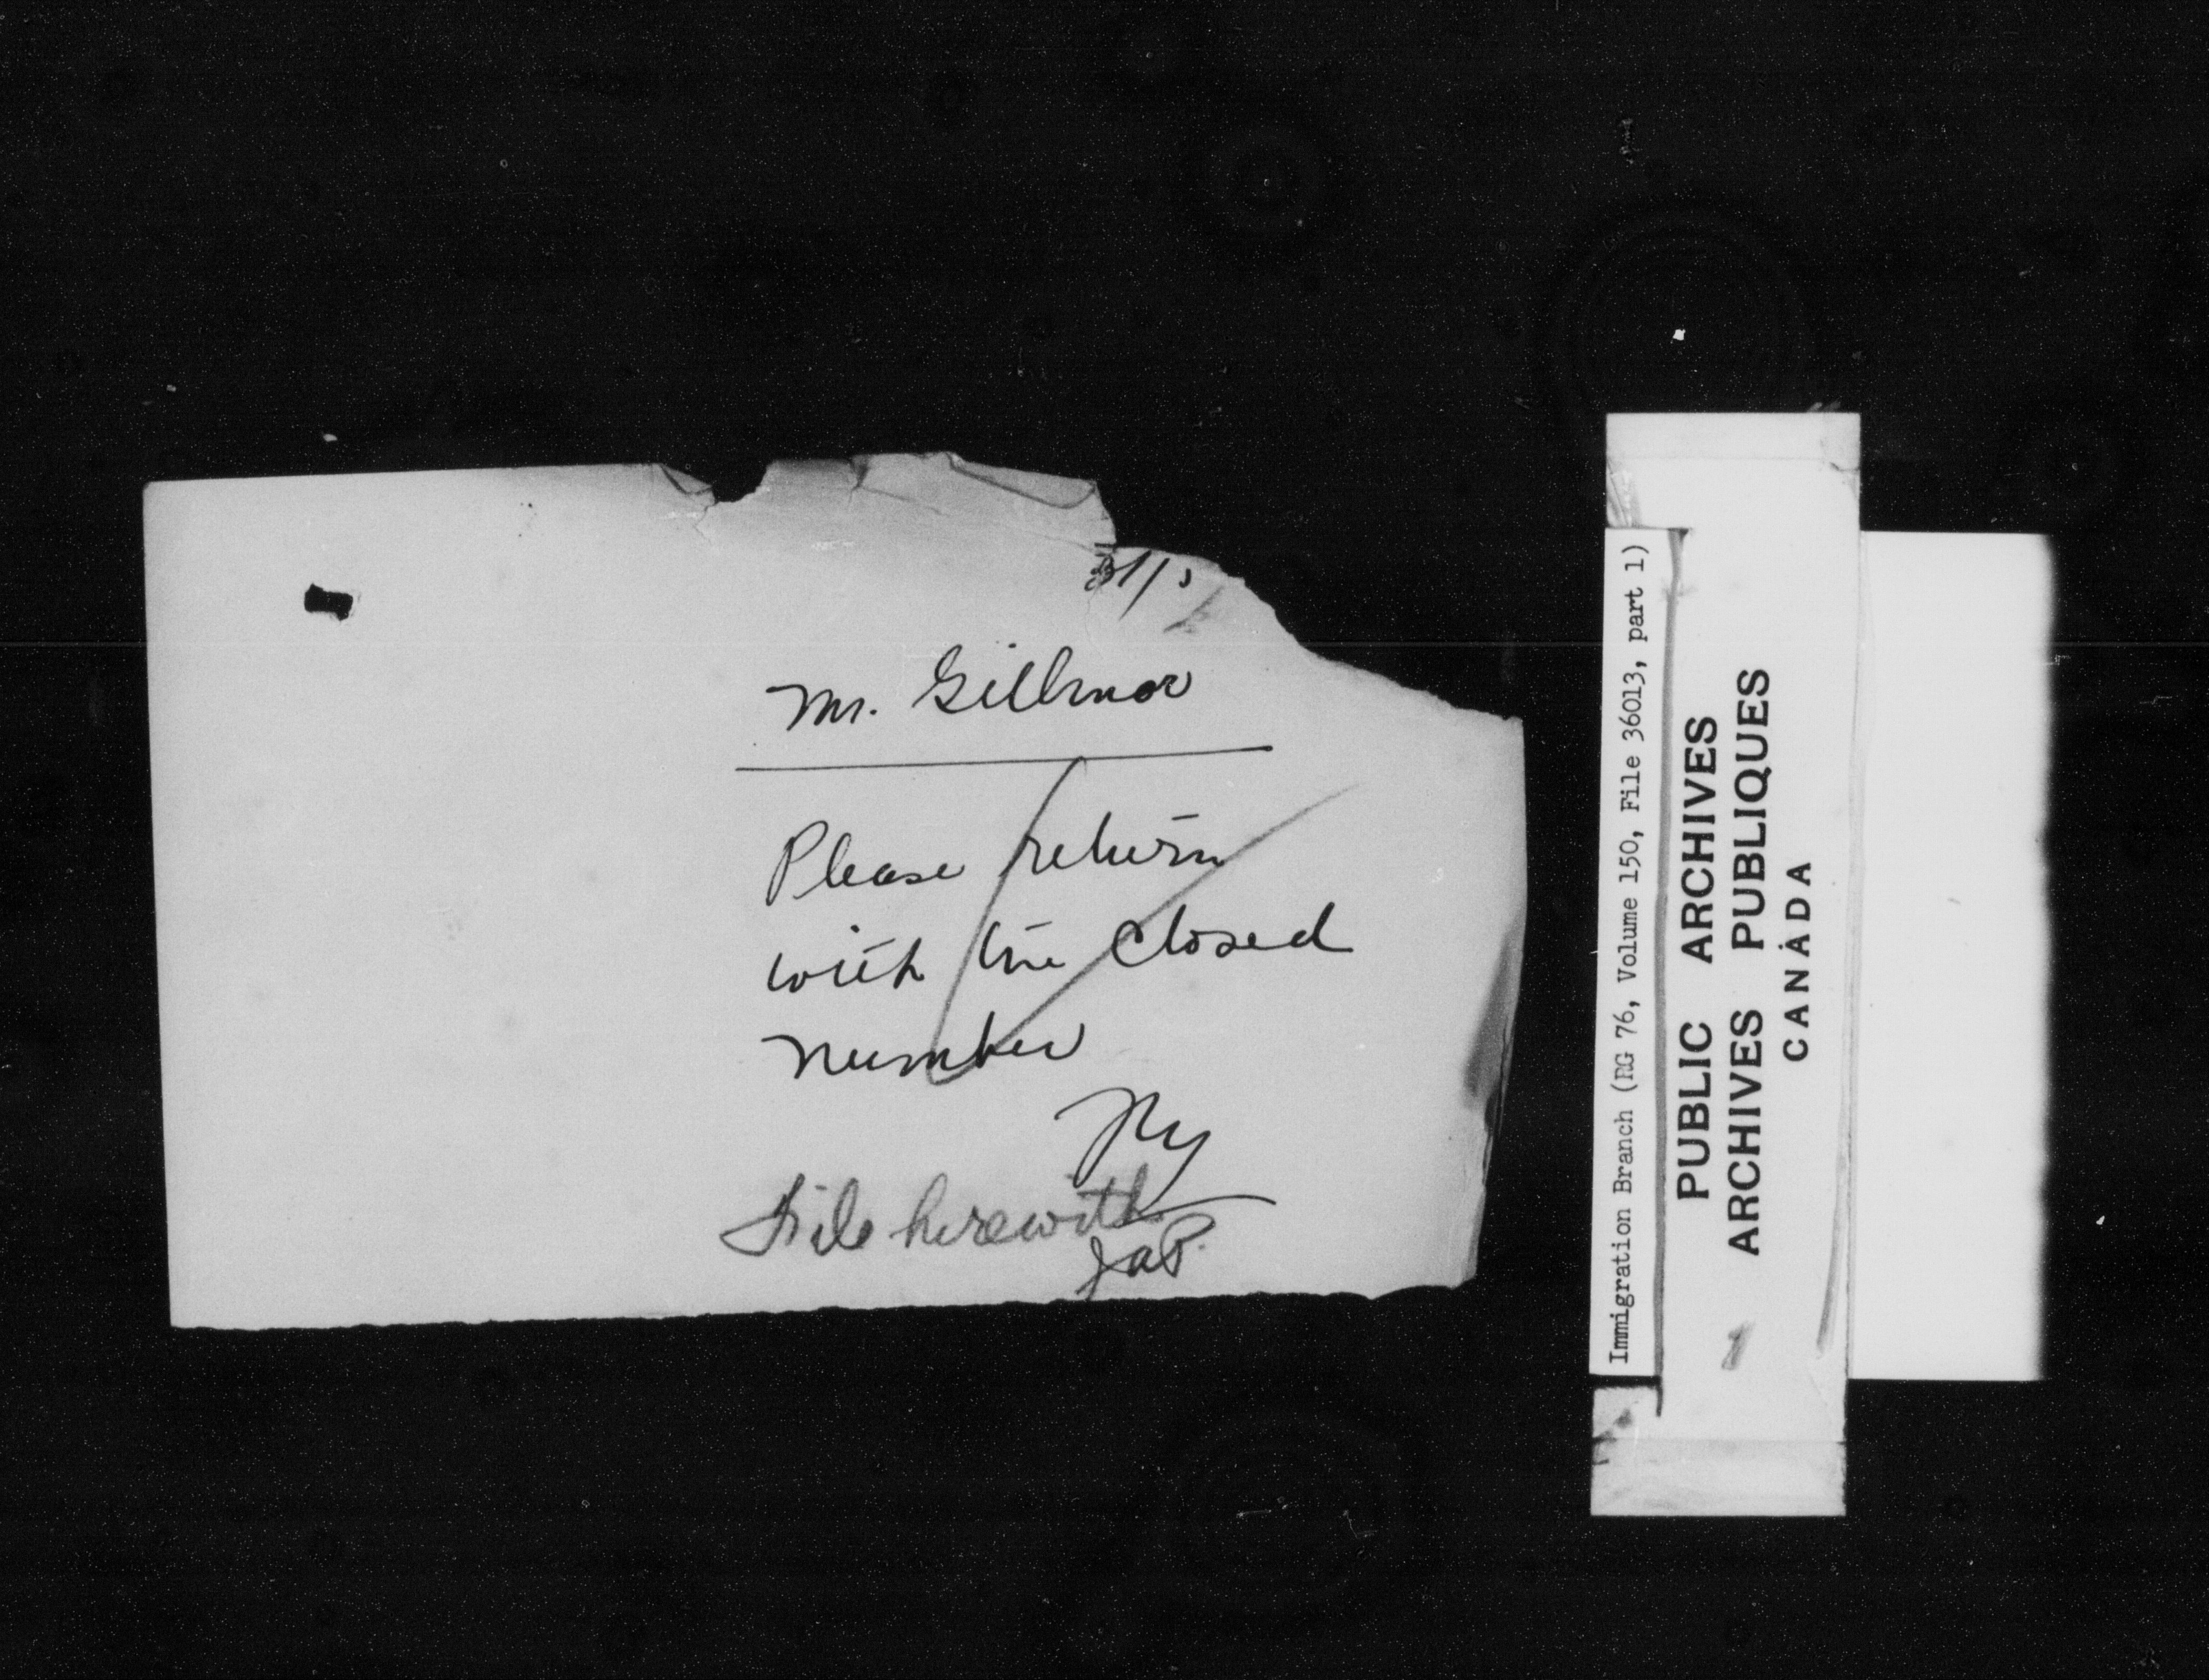 31/5
Mr. Gillmor
Please return
with the closed
number
File herewith
JAP.
Immigration Branch (RG 76, Volume 150, File 36013, part 1)
PUBLIC ARCHIVES
ARCHIVES PUBLIQUES
CANADA